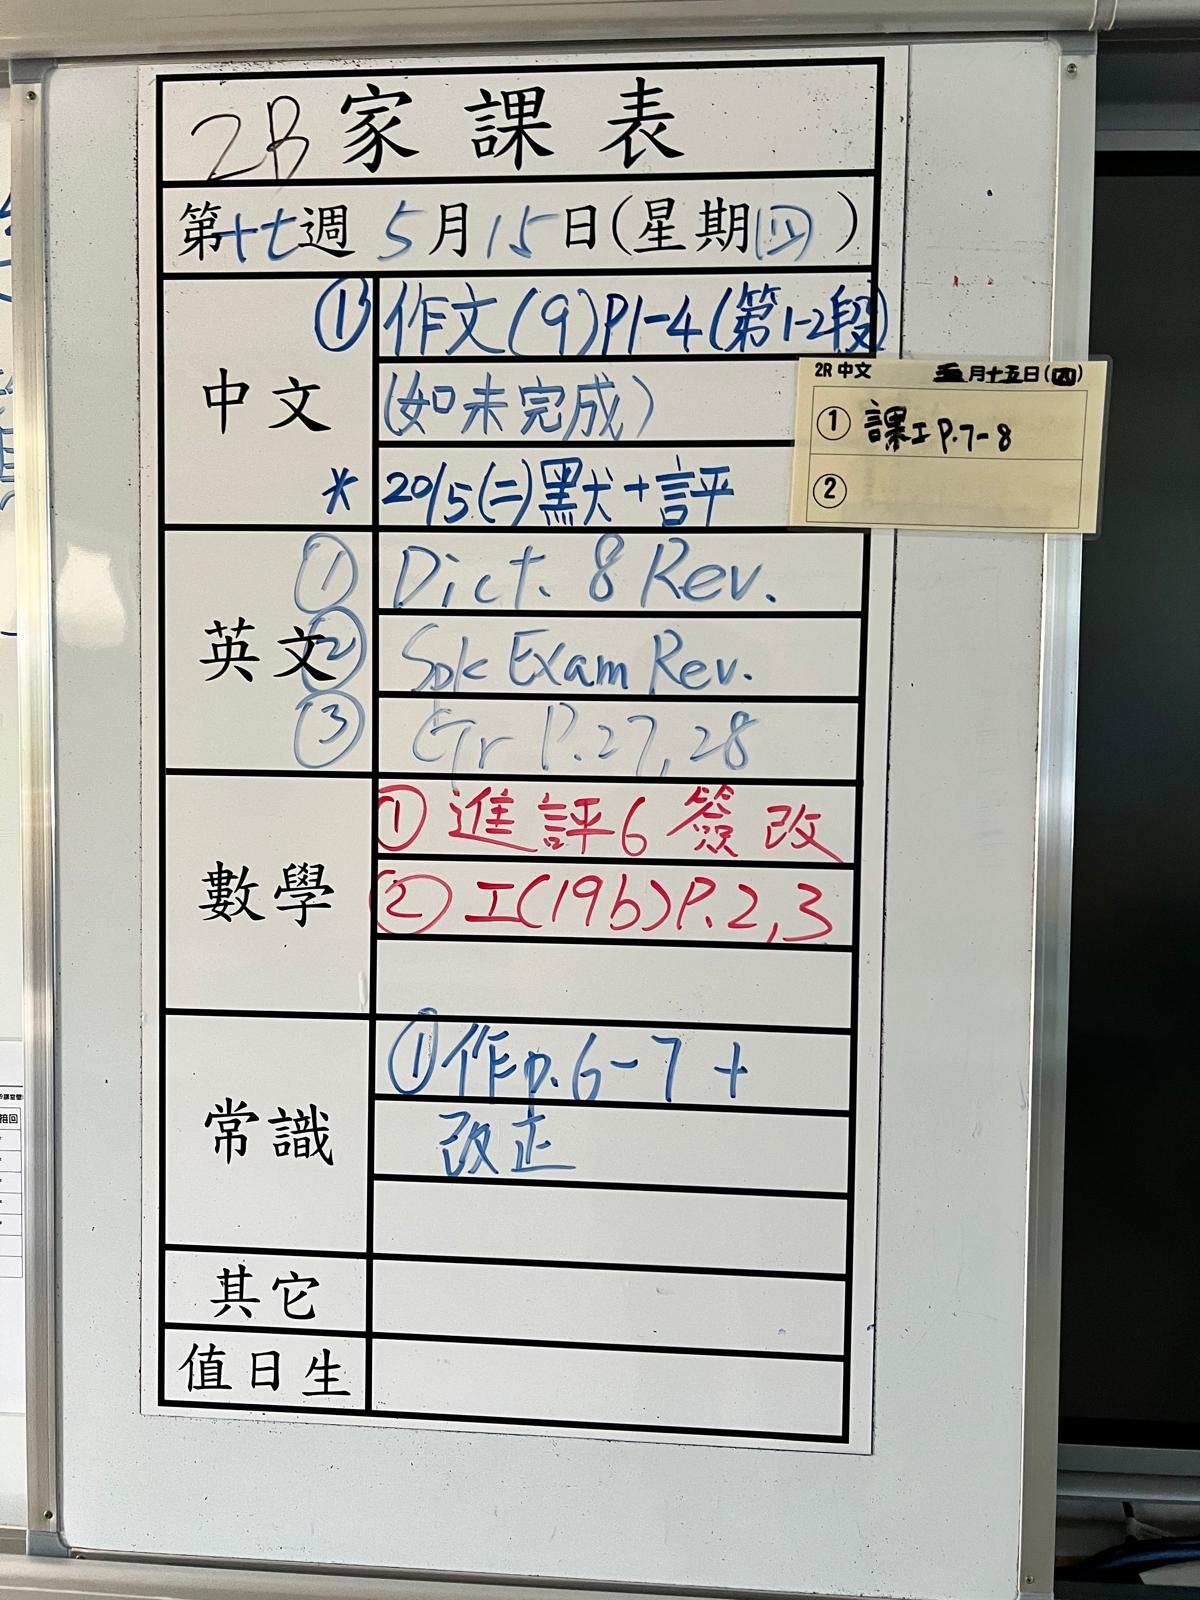 2B 家課表
第十七週 5月15日(星期四)
中文
① 作文(9)P1-4(第1-2段)
(如未完成)
* 20/5(二)默+評
2R 中文 五月十五日(四)
① 課工P.7-8
②
英文
① Dict. 8 Rev.
② Spk Exam Rev.
③ Gr P.27,28
數學
① 進評6 簽改
② 工(19b)P.2,3
常識
① 作p.6-7 +
改正
其它
值日生